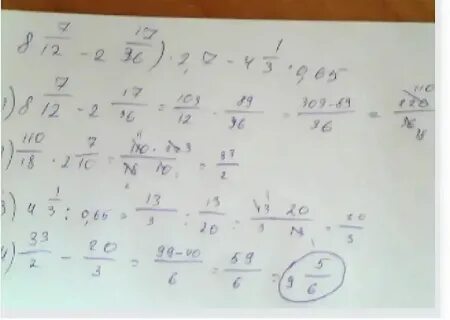 8 7/12 - 2 17/36) · 2,7 - 4 1/3 : 0,65
) 8 7/12 - 2 17/36 = 103/12 - 89/36 = 309-89/36 = 220/36 110/18
) 110/18 · 2 7/10 = 110 · 27/18 · 10 = 33/2
3) 4 1/3 : 0,65 = 13/3 : 13/20 = 13 · 20/3 · 13 = 20/3
4) 33/2 - 20/3 = 99-40/6 = 59/6 = 9 5/6